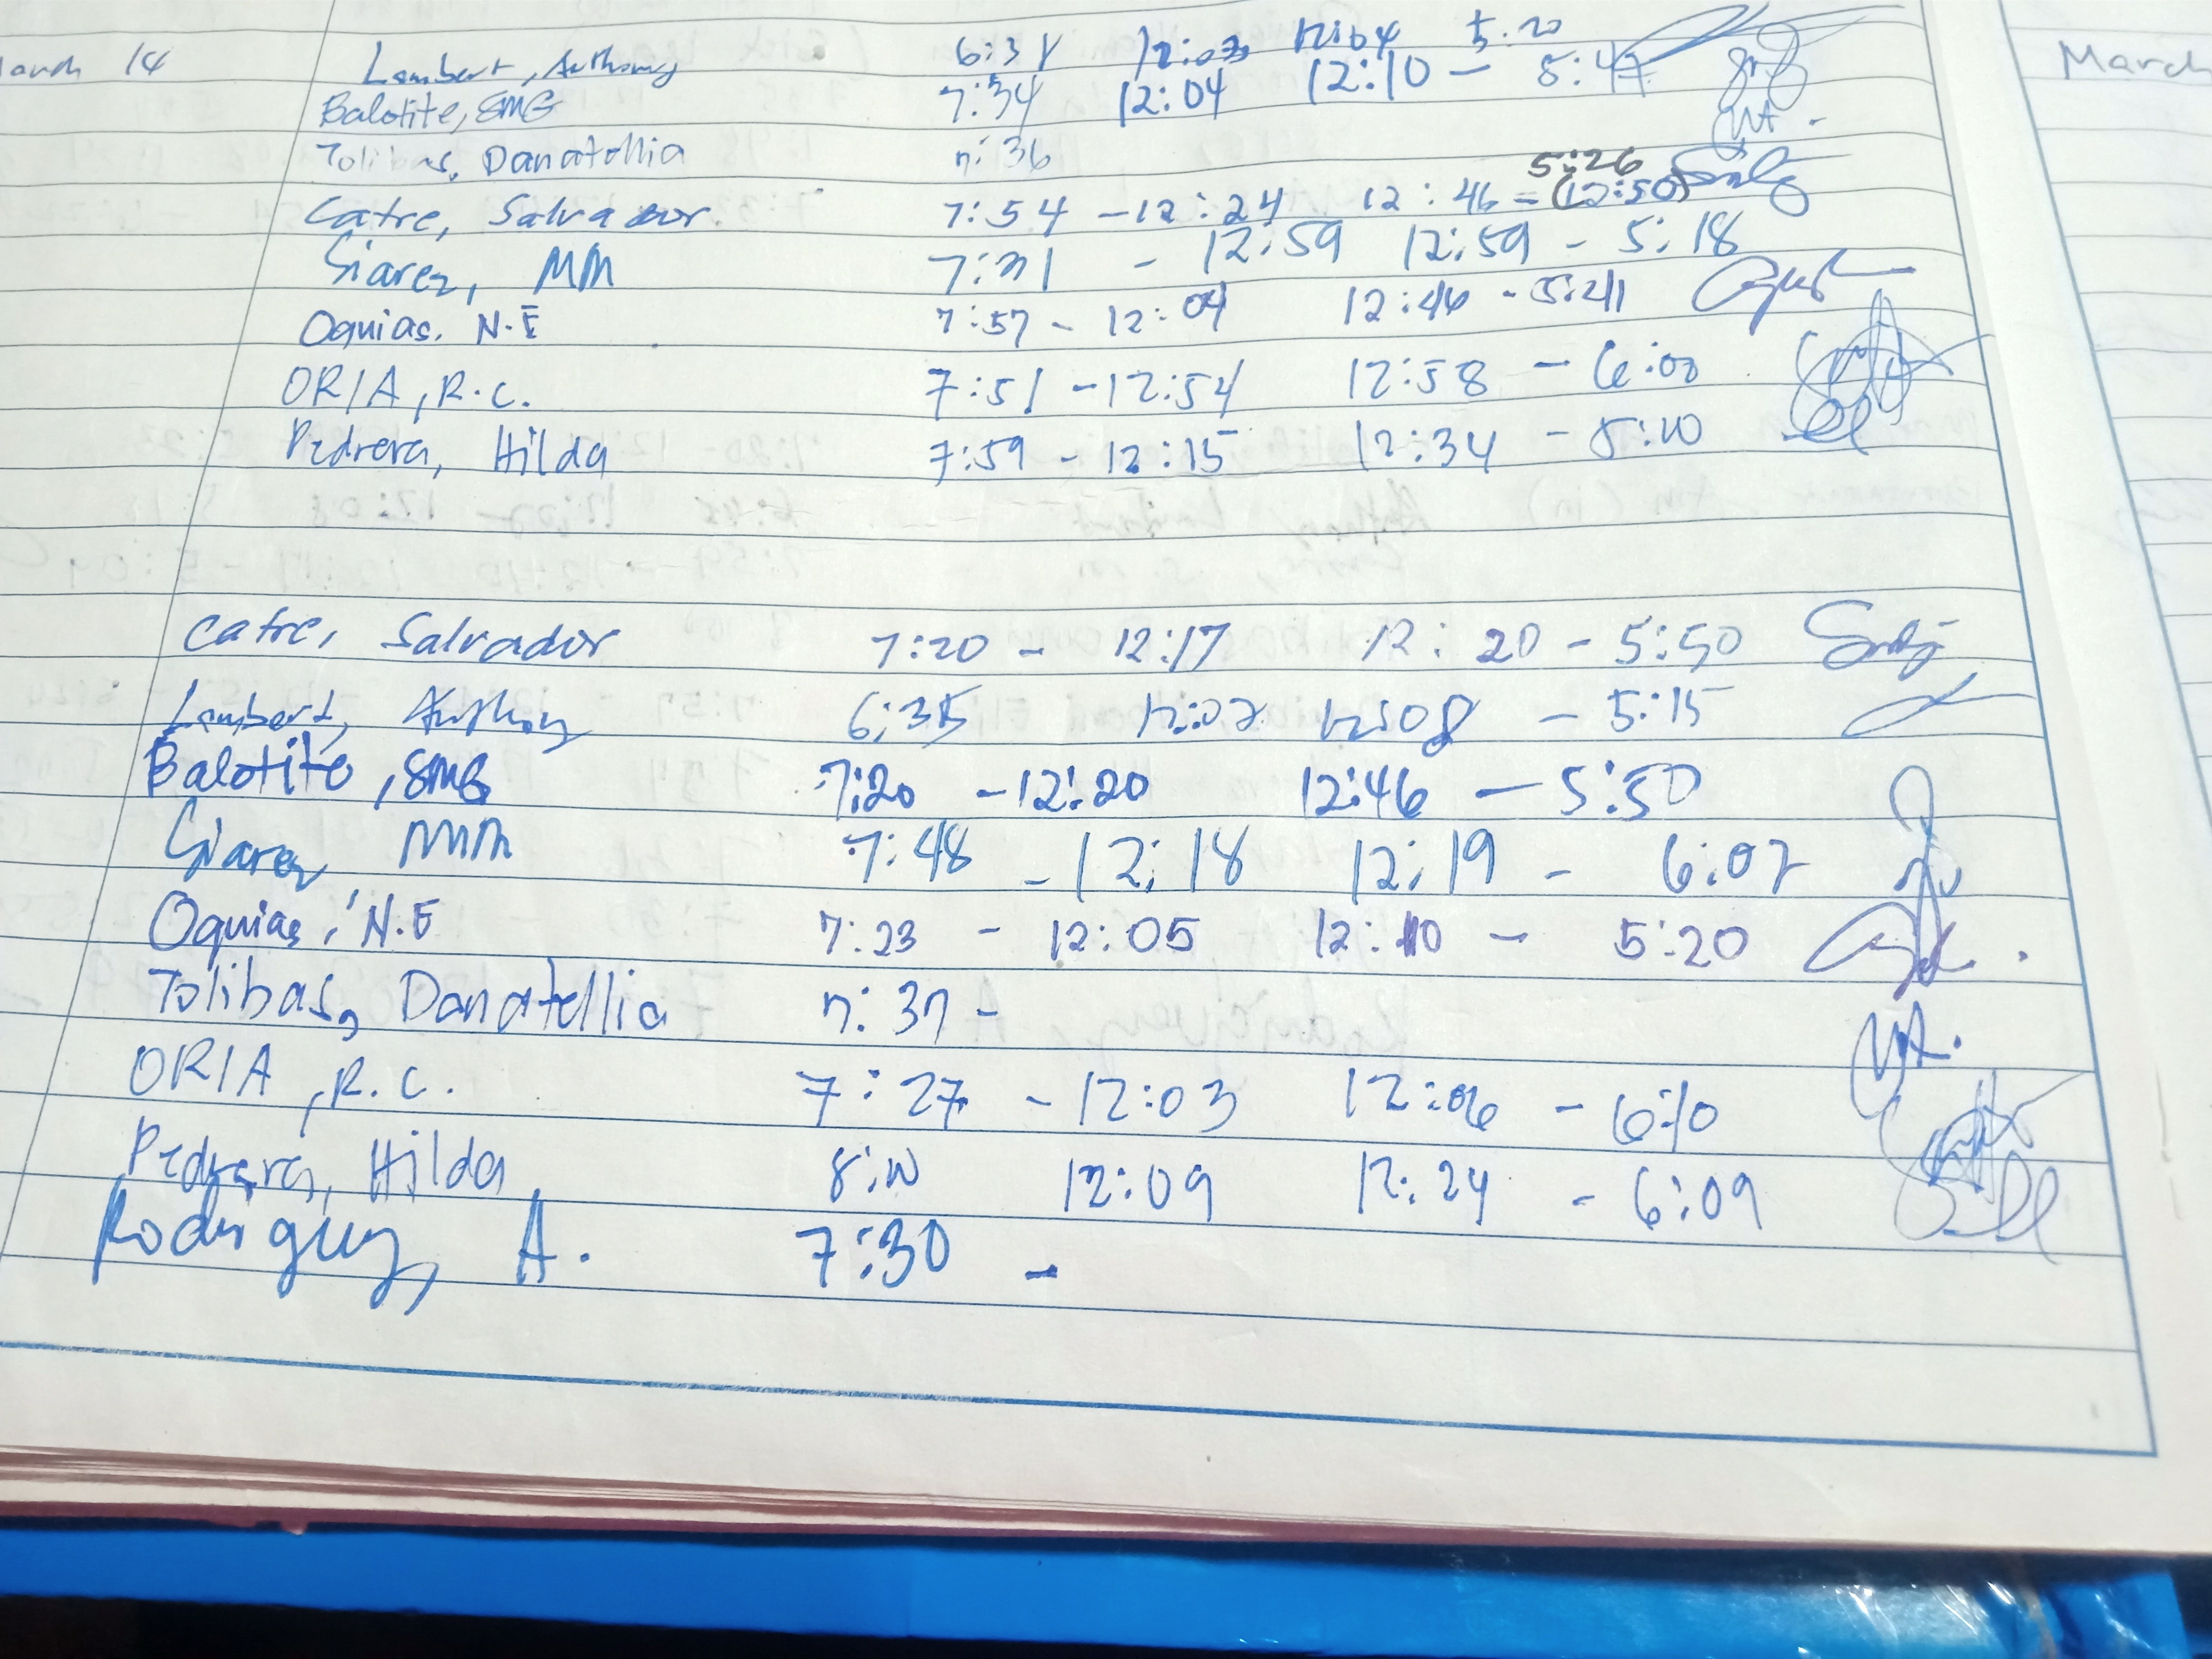 March 14 Lambert, Anthony 6:31 12:03 12:04 5:20
Balotite, SMG 7:34 12:04 12:10 — 5:47
Tolibas, Danatellia 7:36
5:26
Catre, Salvador 7:54 - 12:24 12:46 = (12:50)
Siarez, MM 7:31 - 12:59 12:59 - 5:18
Oquias, N.E 7:57 - 12:04 12:46 - 5:41
ORIA, R.C. 7:51 - 12:54 12:58 - 6:00
Pedrera, Hilda 7:59 - 12:15 12:34 - 5:10
Catre, Salvador 7:20 - 12:17 12:20 - 5:50
Lambert, Anthony 6:35 12:02 12:08 - 5:15
Balotite, SMG 7:20 - 12:20 12:46 — 5:50
Siarez MM 7:48 - 12:18 12:19 - 6:07
Oquias, N.E 7:23 - 12:05 12:10 - 5:20
Tolibas, Danatellia 7:37 -
ORIA, R.C. 7:27 - 12:03 12:06 - 6:10
Pedrera, Hilda 8:10 12:09 12:24 - 6:09
Rodriguez, A. 7:30 -
March